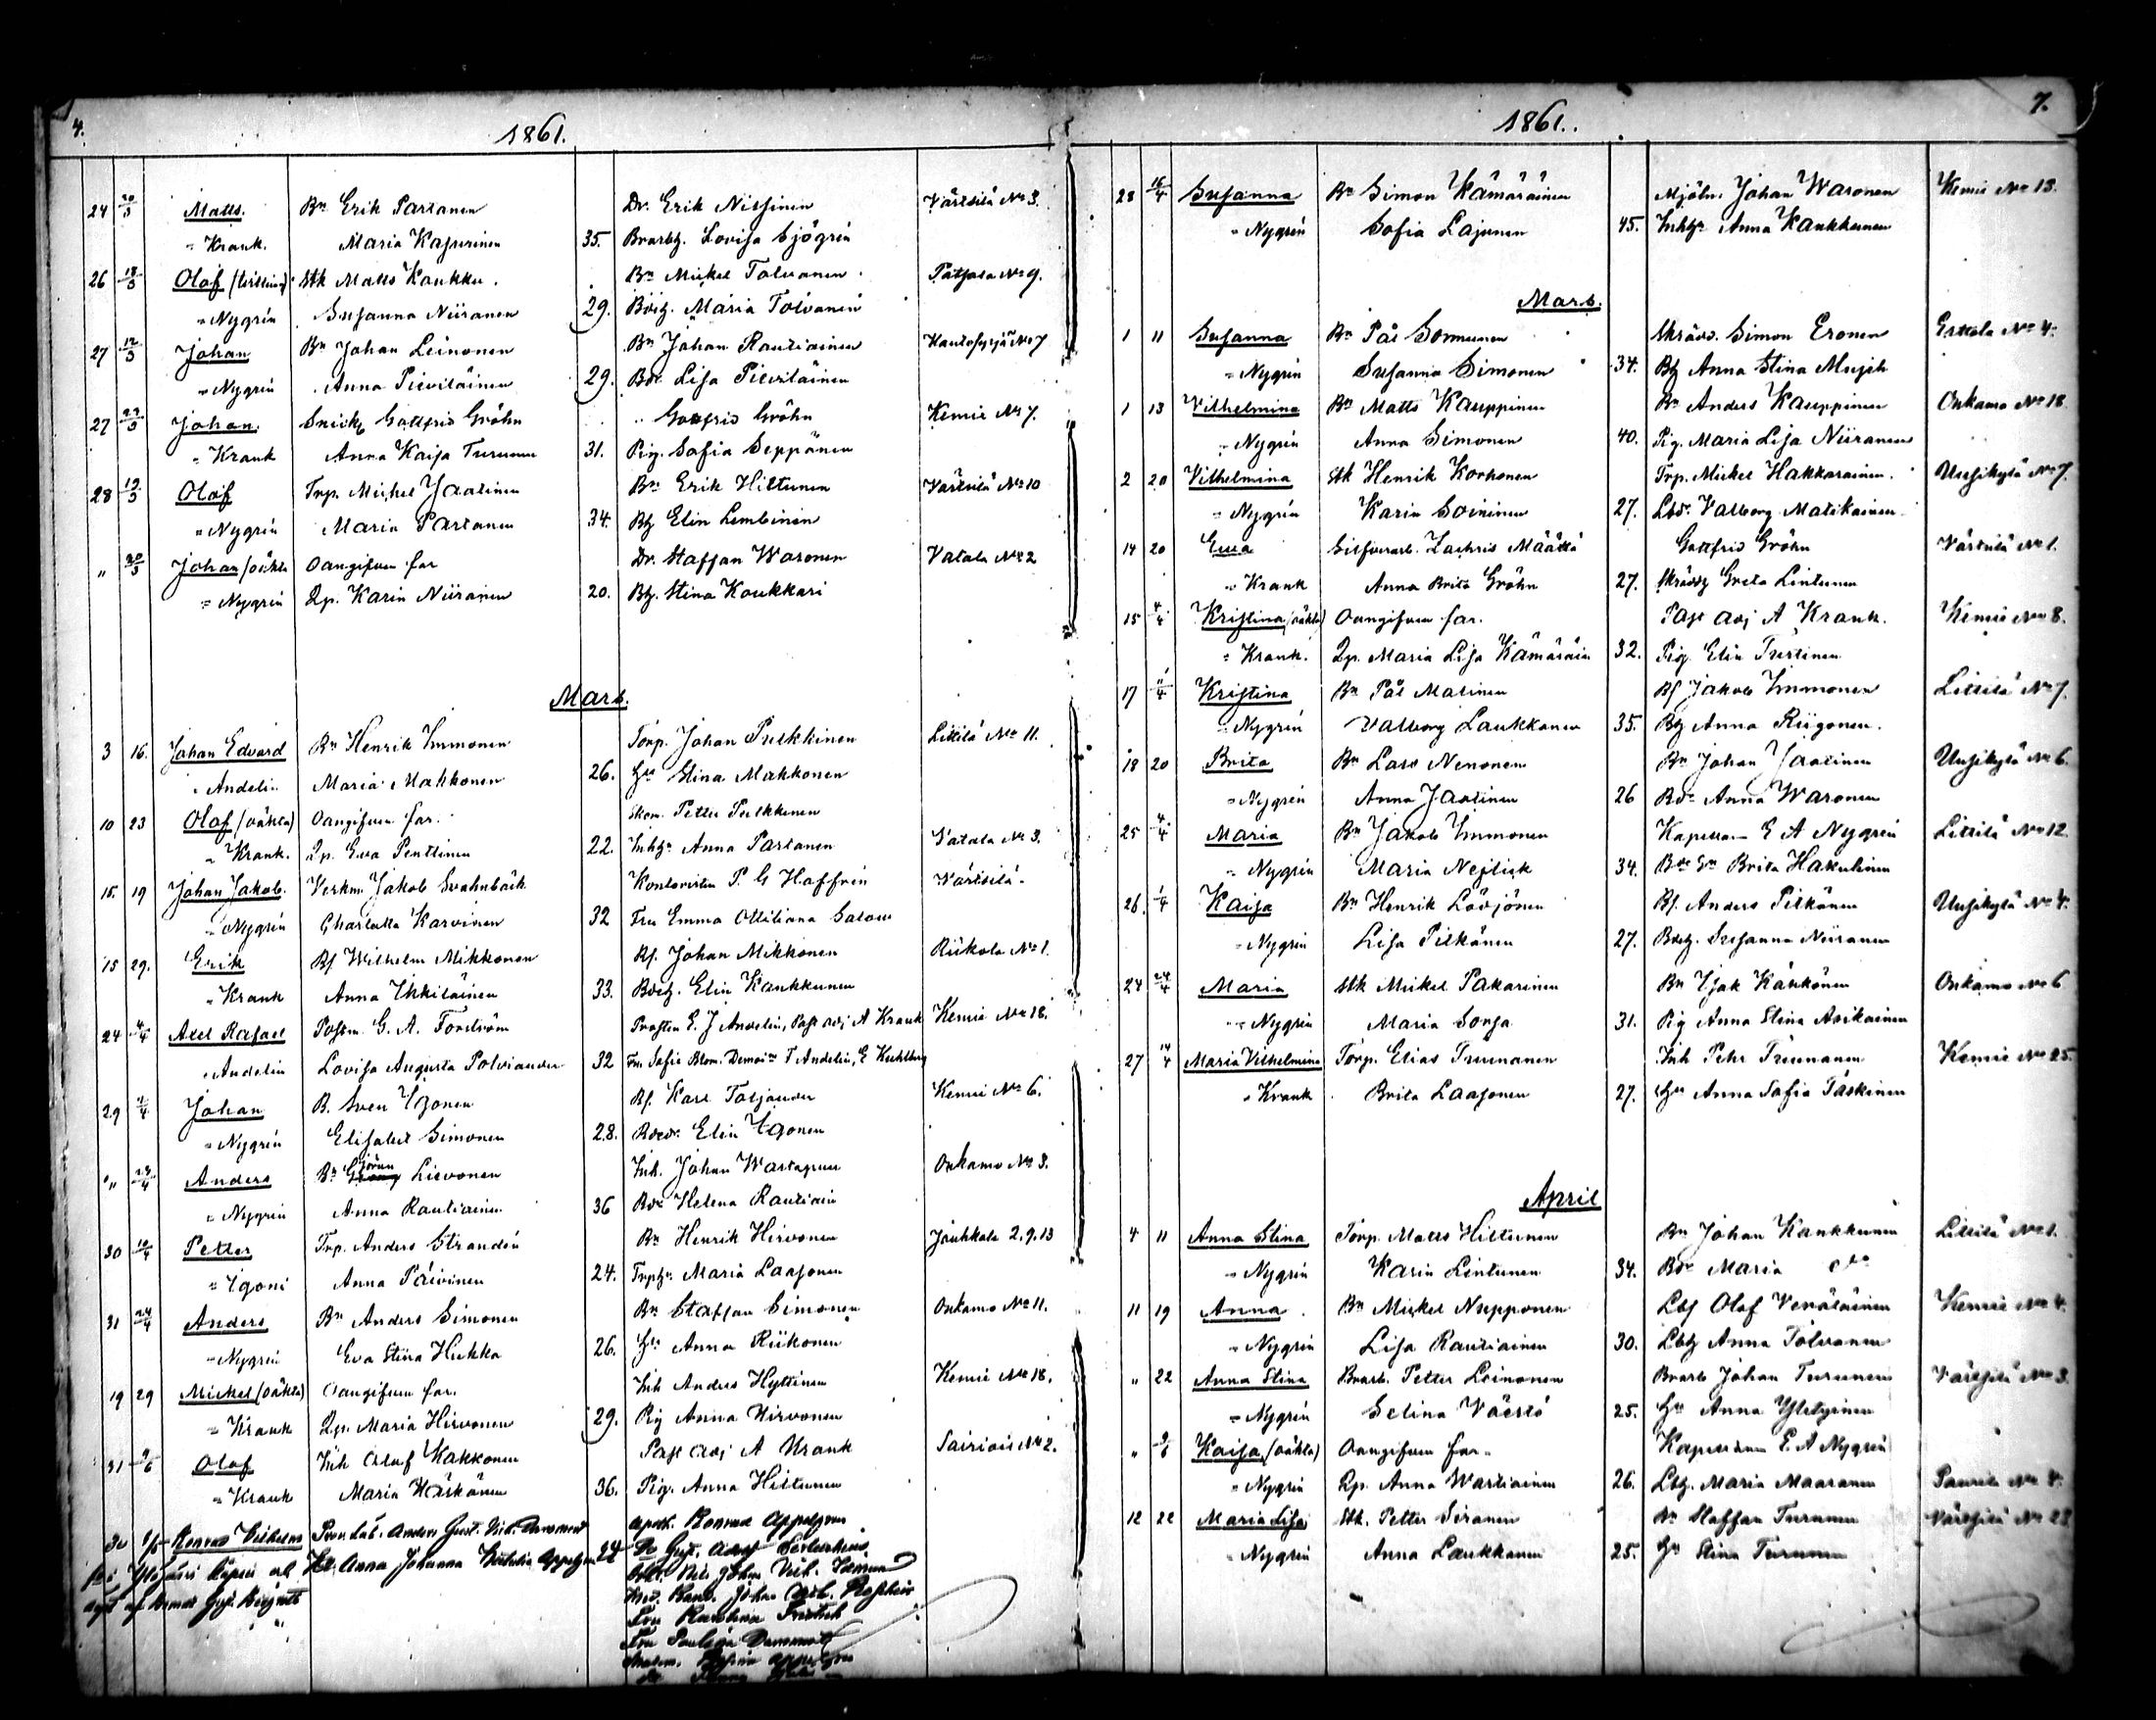 4.
1861.
24 20/3 Matts. Bn Erik Partanen Dr. Erik Nissinen Värtsilä No 3.
" Krank. Maria Kasurinen 35. Brarbh. Lovisa Sjögrén
26 18/3 Olof Stk Matts Koukku. Bn Mickel Tolvanen. Patsola No 9.
" Nygrén Susanna Niiranen 29. Maria Tolvanen
27 12/3 Johan Bn Johan Leinonen Bn Johan Rautiainen No 7
" Nygrén Anna Pieviläinen 29. Bdr Lisa Pieviläinen
27 27/3 Johan. Gottfrid Gröhn " Gottfrid Gröhn Kemie No 7.
" Krank Anna Kaisa Turunen 31. Pig. Sofia Seppänen
28 19/3 Olof Trp. Mickel Jaatinen Bn Erik Hiltunen Värtsilä No 10
" Nygrén Maria Partanen 34. Bh Elin Lembinen
" 30/3 Johan (oäkta Oangifven far Dr. Staffan Waronen Vatala No 2
" Nygrén Qp. Karin Niiranen 20. Bh. Stina Koukkari
Mars.
3 16. Johan Edvard Bn Henrik Immonen Torp. Johan Pulkkinen Littilä No 11.
" Andelin Maria Makkonen 26. Hu Stina Makkonen
10 23 Olof (oäkta) Oangifven far. Petter Pulkkinen
" Krank. Qp. Eva Penttinen 22. Inhhu Anna Partanen Vatala No 3.
15. 19 Johan Jakob. Verkm. Jakob Svahnbäck Kontoristen P. G Haffrén Värtsilä.
" Nygrén Charlotta Karvinen 32 Fru Emma Ottiliana
15 29. Erik Bs Wilhelm Mikkonen Bs. Johan Mikkonen Riikola No 1.
" Krank Anna Ikkiläinen 33. Elin Kaukkunen
24 4/4 Axel Rafael Postm. G. A. Forström Prosten E. J Andelin, Past adj A Krank Kemie No 18.
" Andelin Lovisa Augusta Polviander 32 Fru Sofie Blom. T Andelin, E
29 1/4 Johan B. Sven Igonen Bs. Karl Kemie No 6.
" Nygrén Elisabet Simonen 28. Elin Igonen
" 24/4 Anders Bn Göran Lievonen Inh. Johan Wartapuu Onkamo No 3.
" Nygrén Anna Rautiainen 36 Bdr Helena Rautiain
30 10/4 Petter Trp. Anders Strandén Bn Henrik Hirvonen Jouhkola 2,9,13
" Igoni Anna Päivinen 24. Maria Laasonen
31 24/4 Anders Bn Anders Simonen Bn Staffan Simonen Onkamo No 11.
" Nygrén Eva Stina Hukka 26. Hu Anna Riikonen
19 29 Mickel (oäkta) Oangifven far. Inh Anders Hyttinen Kemie No 18.
" Krank Qp. Maria Hirvonen 29. Pig Anna Hirvonen
31 9/6 Olof Inh Olof Kakkonen Past adj A Krank Sairiois No 2.
" Krank Maria Käskänen 36. Pig. Anna Hiltunen
30 Konrad Vilhelm Anders Gust. Vilh. Apoth. Konrad Appelgren
Anna Johanna Appelgren 24
7.
1861.
28 16/4 Susanna Bn Simon Kämäräinen Mjöln. Johan Waronen Kemie No 13.
" Nygrén Sofia Lajunen 45. Inhhr Anna Kaukkunen
Mars.
1 11 Susanna Bn Pål Sormunen Skrädd. Simon Eronen Eskola No 4.
" Nygrén Susanna Simonen 34. Bh Anna Stina
1 13 Vilhelmina Bn Matts Kauppinen Bn Anders Kauppinen Onkamo No 18
" Nygrén Anna Simonen 40. Pig. Maria Lisa Niiranen
2 20 Vilhelmina Stk Henrik Korhonen Trp. Mickel Hakkarainen. Uusikylä No 7.
" Nygrén Karin Soininen 27. Lbdr Valborg Matikainen
14 20 Eva Zachris Määttä Gottfrid Gröhn Värtsilä No 1.
" Krank Anna Brita Gröhn 27. Greta Lintunen
15 4/4 Kristina (oäkta) Oangifven far. Past adj A Krank. Kemie No 8.
" Krank. Qp. Maria Lisa Kämäräin 32. Pig. Elin
17 11/4 Kristina Bn Pål Matinen Bs Jakob Immonen Littilä No 7.
" Nygrén Valborg Laukkanen 35. Bh Anna Riigonen.
18 20 Brita Bn Lars Nenonen Bn Johan Jaatinen Uusikylä No 6.
" Nygrén Anna Jaatinen 26 Bdr Anna Waronen
25 4/4 Maria Bn Jakob Immonen Kapellan E A Nygrén Littilä No 12
" Nygrén Maria 34. Brita Hakulinen
26. 1/4 Kaisa Bn Henrik Lövjönen Bs. Anders Pitkänen Uusikylä No 4.
" Nygrén Lisa Pitkänen 27. Susanna Niiranen
24 24/4 Maria Stk Mickel Pakarinen Bn Isak Käkönen Onkamo No 6
" Nygrén Maria Sorsa 31. Pig Anna Stina Asikainen
27 14/4 Maria Vilhelmina Torp. Elias Truunanen Inh Pehr Truunanen Kemie No 25
" Krank Brita Laasonen 27. Hu Anna Sofia Taskinen
April
4 11 Anna Stina Torp. Matts Hiltunen Bn Johan Kaukkunen Littilä No 1.
" Nygrén Karin Lintunen 34. Bdr Maria do
11 19 Anna. Bn Mickel Nupponen Lbs Olof Venäläinen Kemie No 4.
" Nygrén Lisa Rautiainen 30. Lbh Anna Tolvanen
" 22 Anna Stina Brarb. Petter Leinonen Brarb Johan Turunen Värtsilä No 3.
" Nygrén Selina Väestö 25. Hu Anna
" 9/6 Kaisa (oäkta) Oangifven far. Kapellan E. A Nygrén
" Nygrén Qp. Anna Wartiainen 26. Lbh. Maria Maaranen No 4.
12 22 Maria Lisa Stk. Petter Siranen Bn Staffan Turunen Värtsilä No 28
" Nygrén Anna Laukkanen 25. Hu Stina Turunen